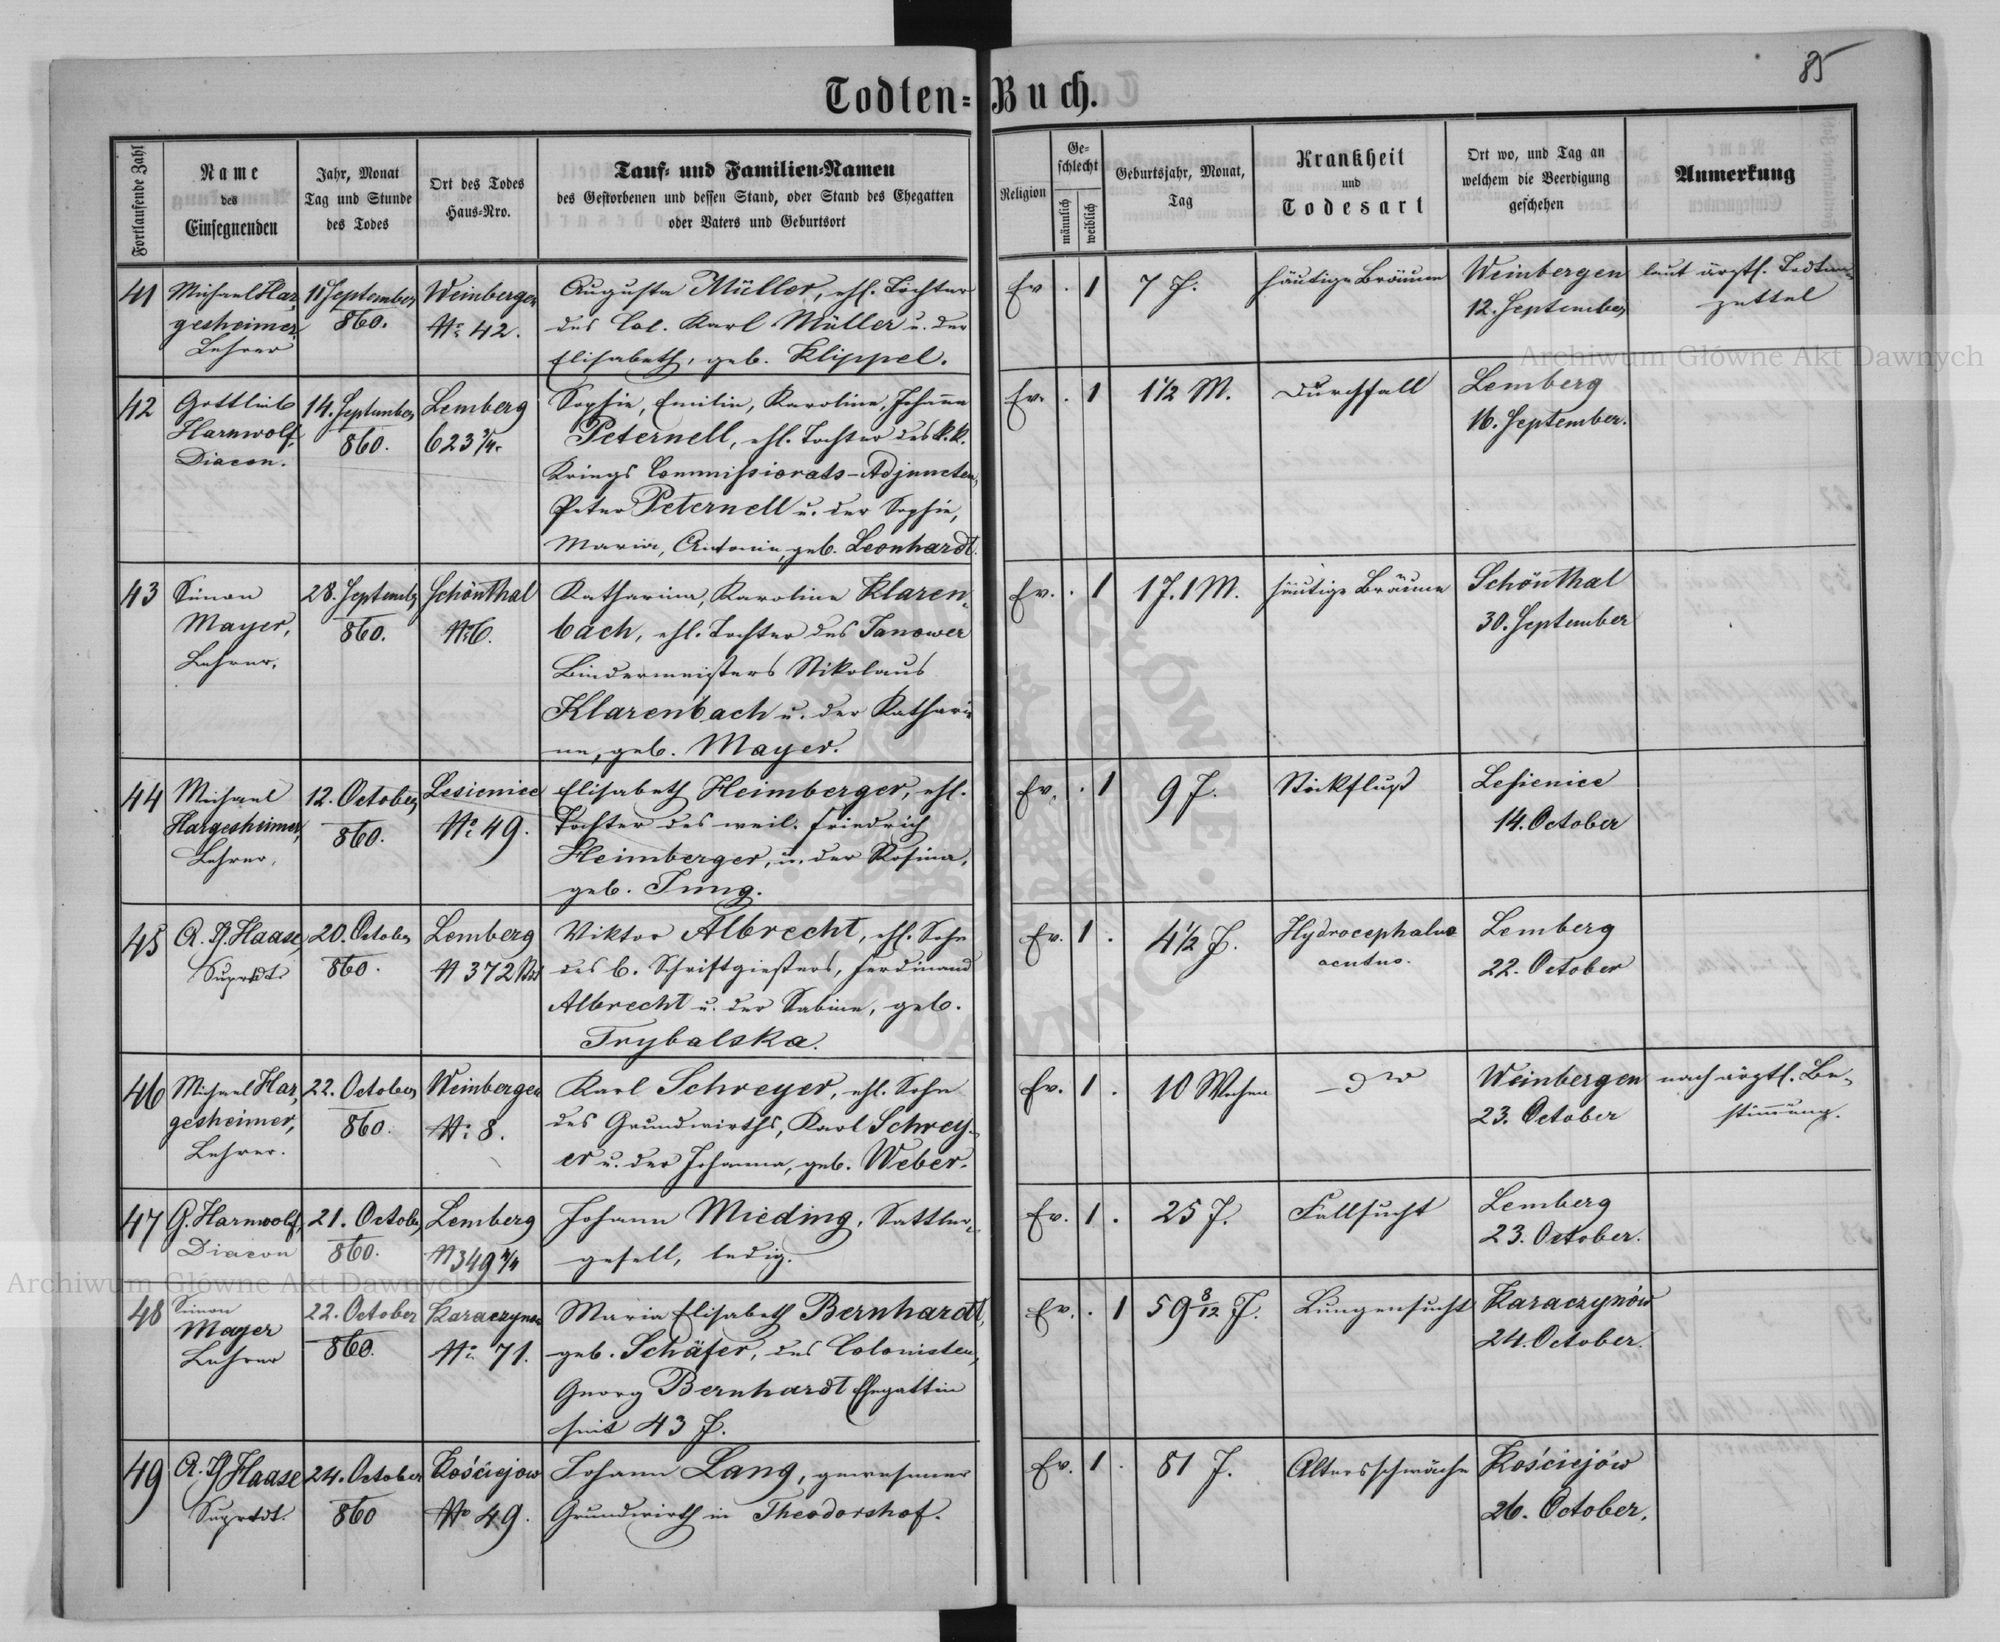 85
Todten-Buch.
Fortlaufende Zahl
Name
des
Einsegnenden
Jahr, Monat
Tag und Stunde
des Todes
Ort des Todes
Haus-Nro.
Tauf- und Familien-Namen
des Gestorbenen und dessen Stand, oder Stand des Ehegatten
oder Vaters und Geburtsort
Religion
Ge-
schlecht
männlich
weiblich
Geburtsjahr, Monat,
Tag
Krankheit
und
Todesart
Ort wo, und Tag an
welchem die Beerdigung
geschehen
Anmerkung
41
Michael Har
gesheimer,
Lehrer
11 September
860.
Weinbergen
No 42.
Augusta Müller, ehl. Tochter
des Col. Karl Müller u. der
Elisabeth, geb. Klippel.
Ev . 1
7 J.
häutige Bräune
Weinbergen
12. September
laut ärztl. Todten-
zettel
42
Gottlieb
Harnwolf,
Diacon.
14. September
860.
Lemberg
623 3/4.
Sophie, Emilie, Karoline, Johanna
Peternell, ehl. Tochter des k. k.
Kriegs Commissiorats-Adjuncten,
Peter Peternell u. der Sophie,
Maria, Antonie, geb. Leonhardt.
Ev. . 1
1 1/2 M.
Durchfall
Lemberg
16. September.
43
Simon
Mayer,
Lehrer,
28. September
860.
Schönthal
No 6.
Katharina, Karoline Klaren-
bach, ehl. Tochter des Janower
Bindermeisters Nikolaus
Klarenbach u. der Kathari-
na, geb. Mayer.
Ev. . 1
1 J. 1 M.
häutige Bräune
Schönthal
30. September
44
Michael
Hargesheimer,
Lehrer,
12. October
860.
Lesienice
No 49.
Elisabeth Heimberger, ehl.
Tochter des weil. Friedrich
Heimberger, u. der Rosina,
geb. Jung.
Ev. . 1
9 J.
Stickfluß
Lesienice
14. October
45
A. Th Haase
Suprdt.
20. October
860.
Lemberg
N 372
Viktor Albrecht, ehl. Sohn
des b. Schriftgießers, Ferdinand
Albrecht u. der Sabine, geb.
Trybalska.
Ev. 1 .
4 1/2 J.
Hydrocephalus
acutus.
Lemberg
22. October
46
Michael Har
gesheimer,
Lehrer.
22. October
860.
Weinbergen
No 8.
Karl Schreyer, ehl. Sohn
des Grundwirths, Karl Schrey-
er u. der Johanna, geb. Weber.
Ev. 1 .
10 Wochen
Weinbergen
23. October
nach ärztl. Be-
stimmung.
47
G. Harnwolf,
Diacon
21. October
860.
Lemberg
N 349 2/4
Johann Mieding, Sattler-
gesell, ledig.
Ev. 1 .
25 J.
Fallsucht
Lemberg
23. October.
48
Simon
Mayer
Lehrer
22. October
860.
Karaczynow
No 71.
Maria Elisabeth Bernhardt,
geb. Schäfer, des Colonisten,
Georg Bernhardt Ehegattin
seit 43 J.
Ev. . 1
59 8/12 J.
Lungensucht
Karaczynów
24. October.
49
A. Th Haase
Suprdt.
24. October
860
Kościejow
No 49.
Johann Lang, gewesener
Grundwirth in Theodorshof.
Ev. 1 .
81 J.
Altersschwäche
Kościejów
26. October.
Archiwum Główne Akt Dawnych
Archiwum Główne Akt Dawnych